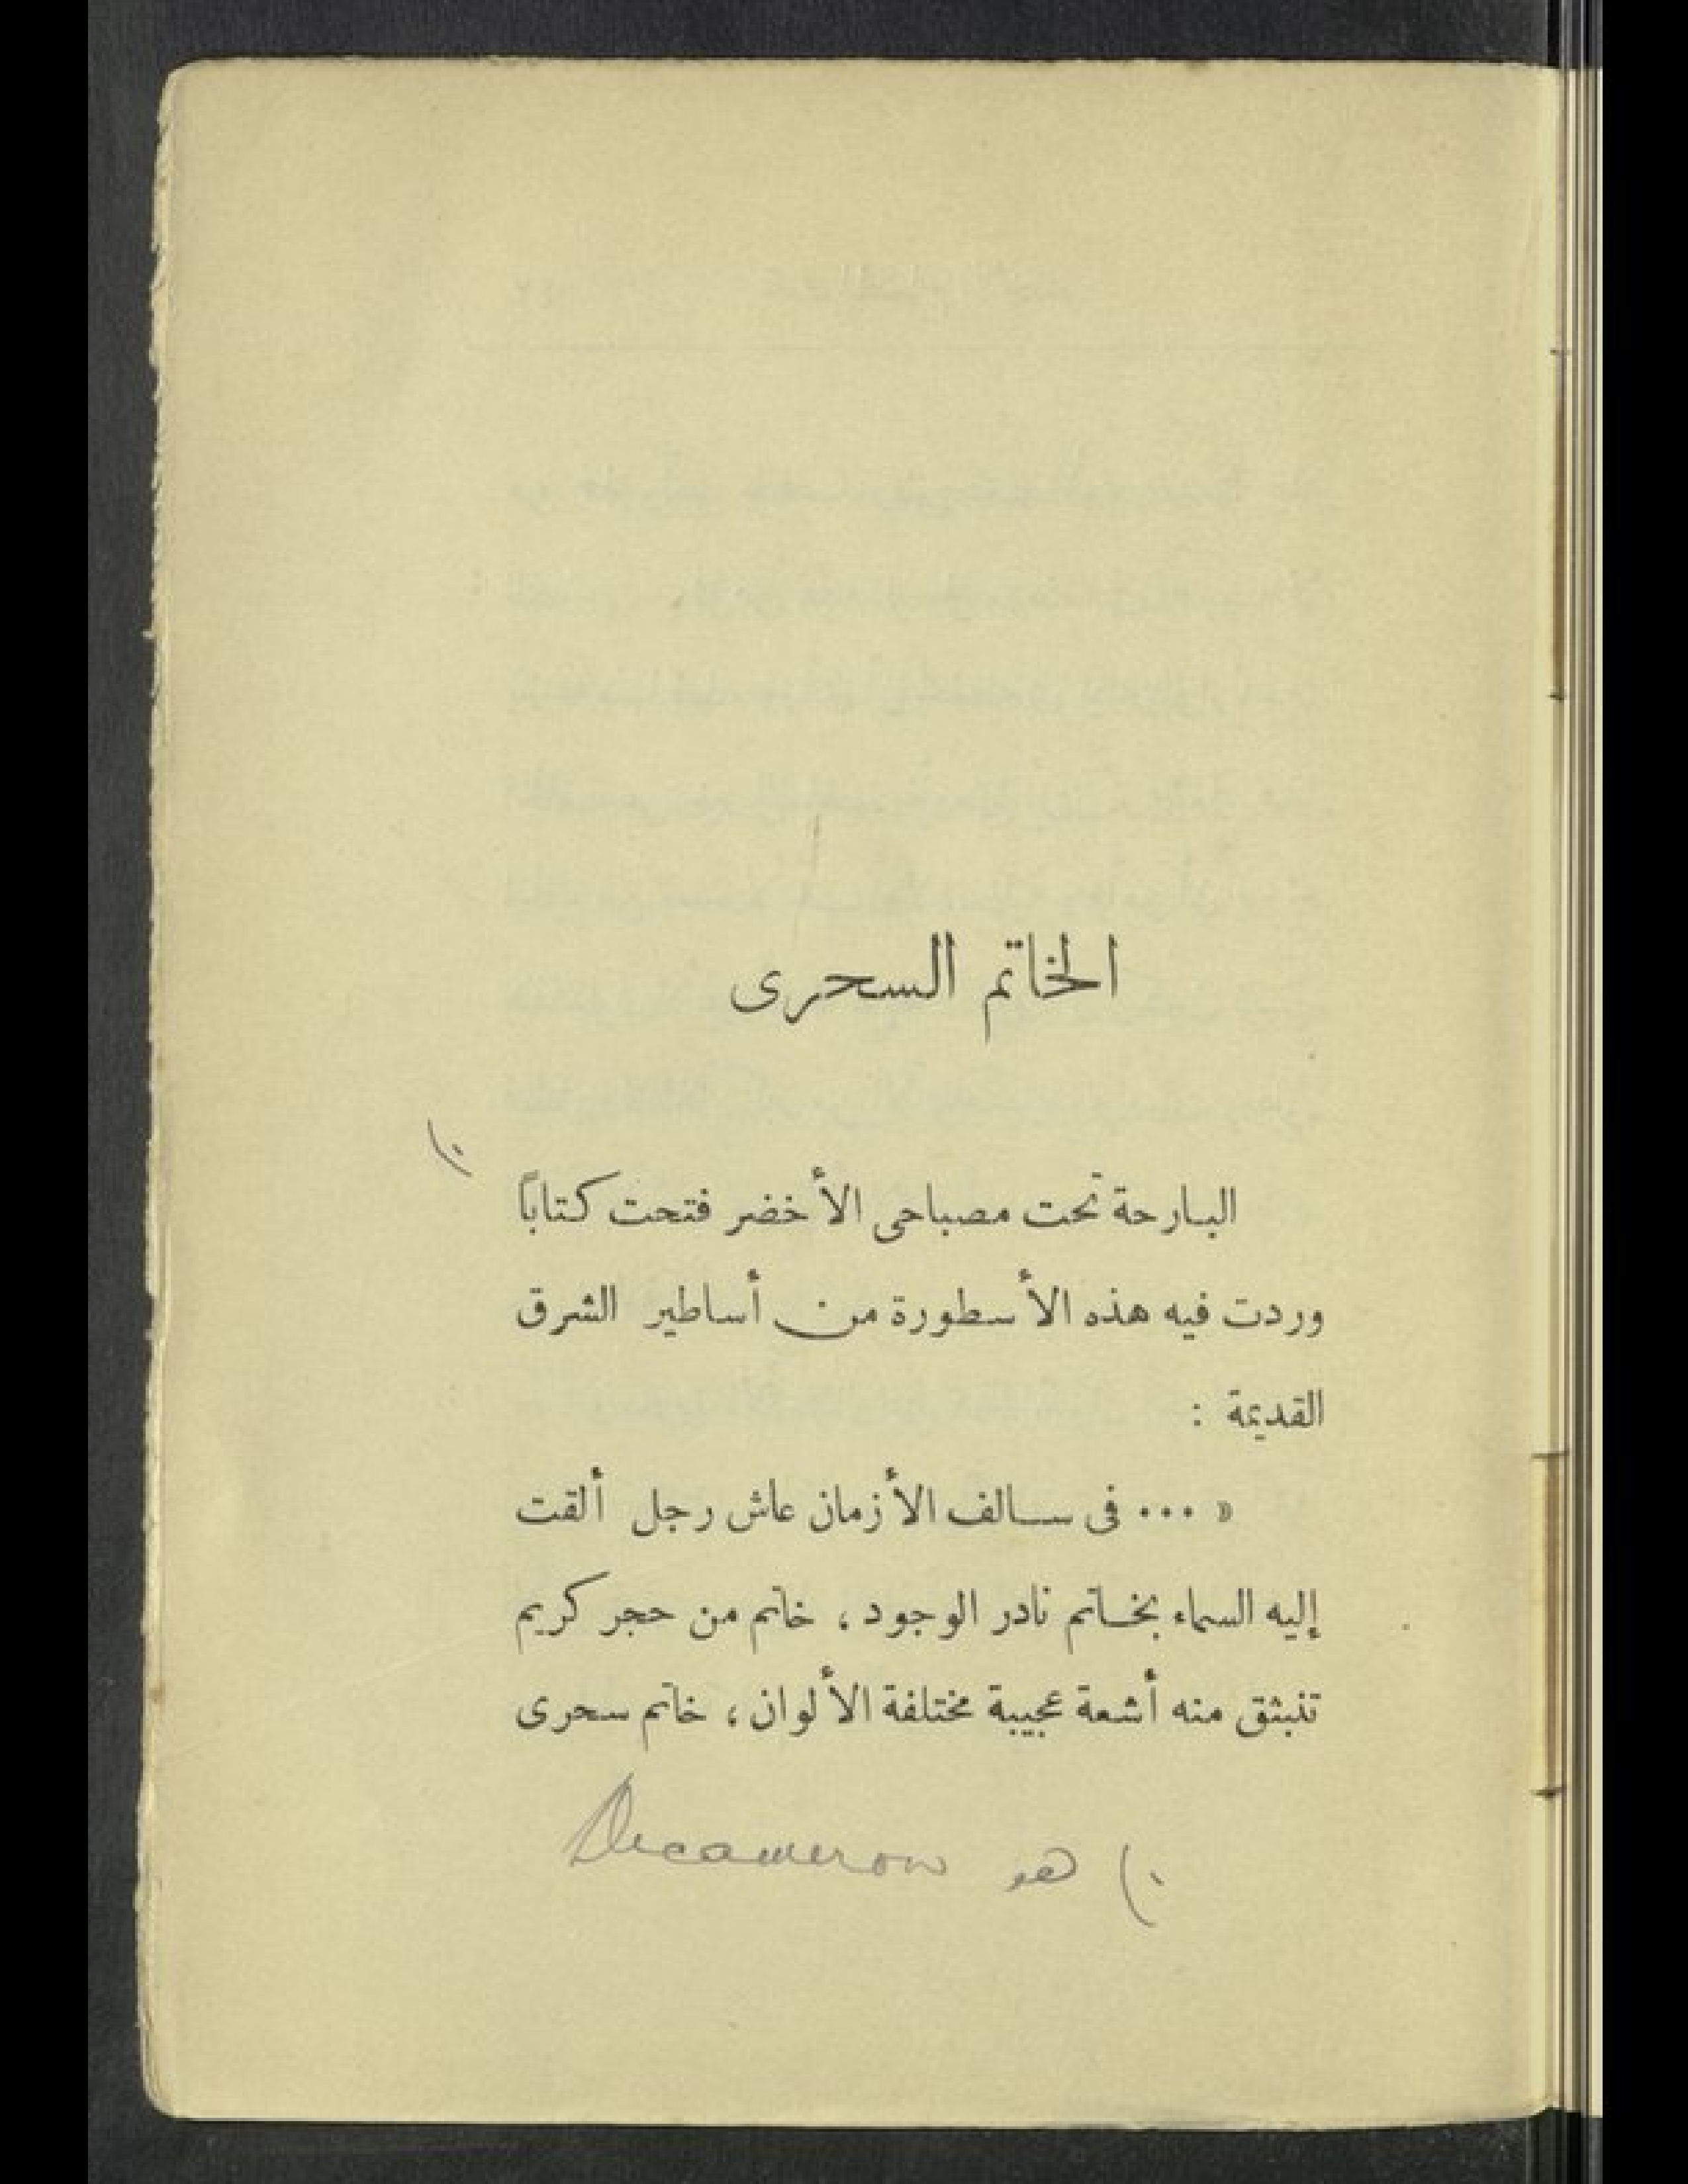 الخاتم السحرى
البارحة تحت مصباحى الأخضر فتحت كتاباً
وردت فيه هذه الأسطورة من أساطير الشرق
القديمة :
« ... فى سالف الأزمان عاش رجل ألقت
إليه السماء بخاتم نادر الوجود ، خاتم من حجر كريم
تنبثق منه أشعة عجيبة مختلفة الألوان ، خاتم سحرى
هو Decameron